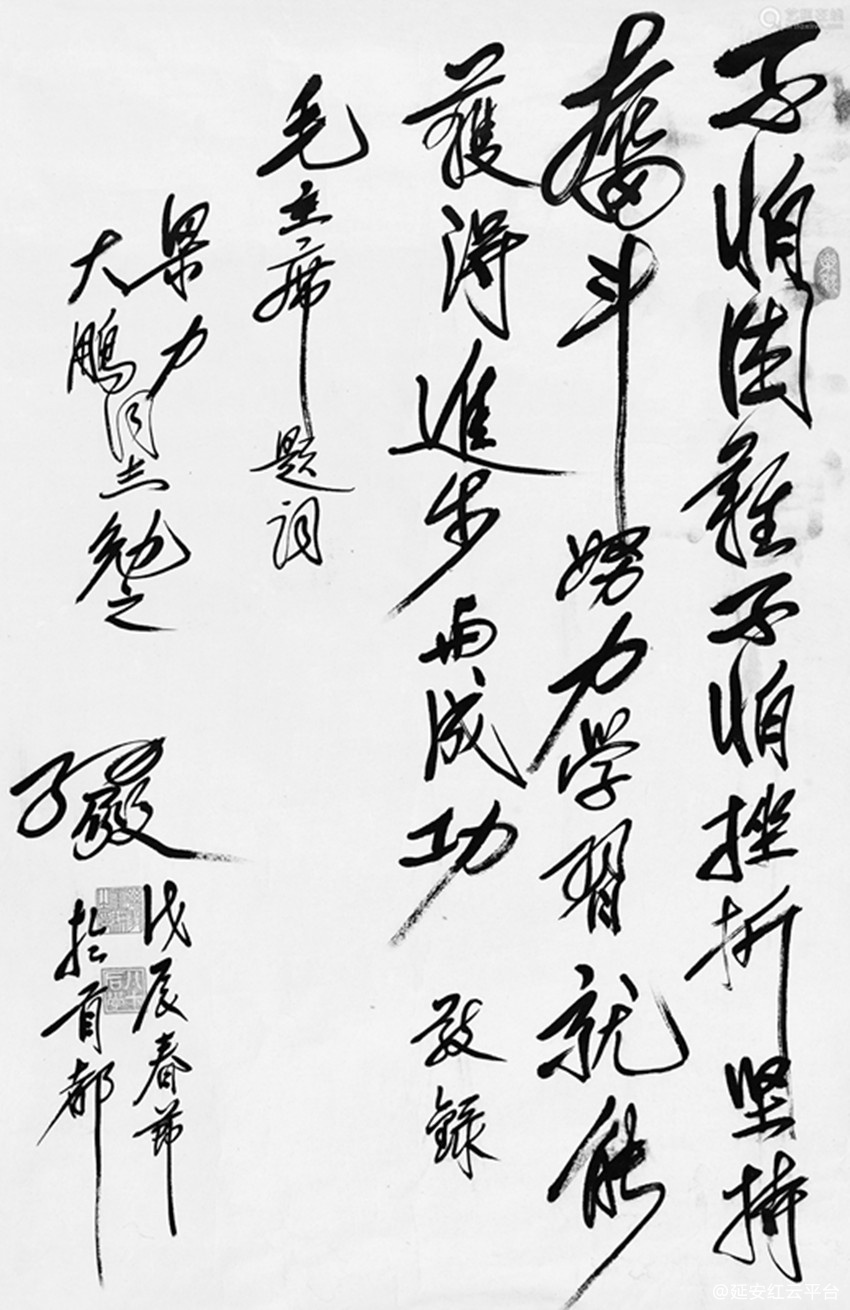 不怕困难不怕挫折坚持
奋斗努力学习就能
獲得進步与成功
敬録
毛主席题词
果力
大鹏同志勉之
戊辰春节
於首都
@延安红云平台